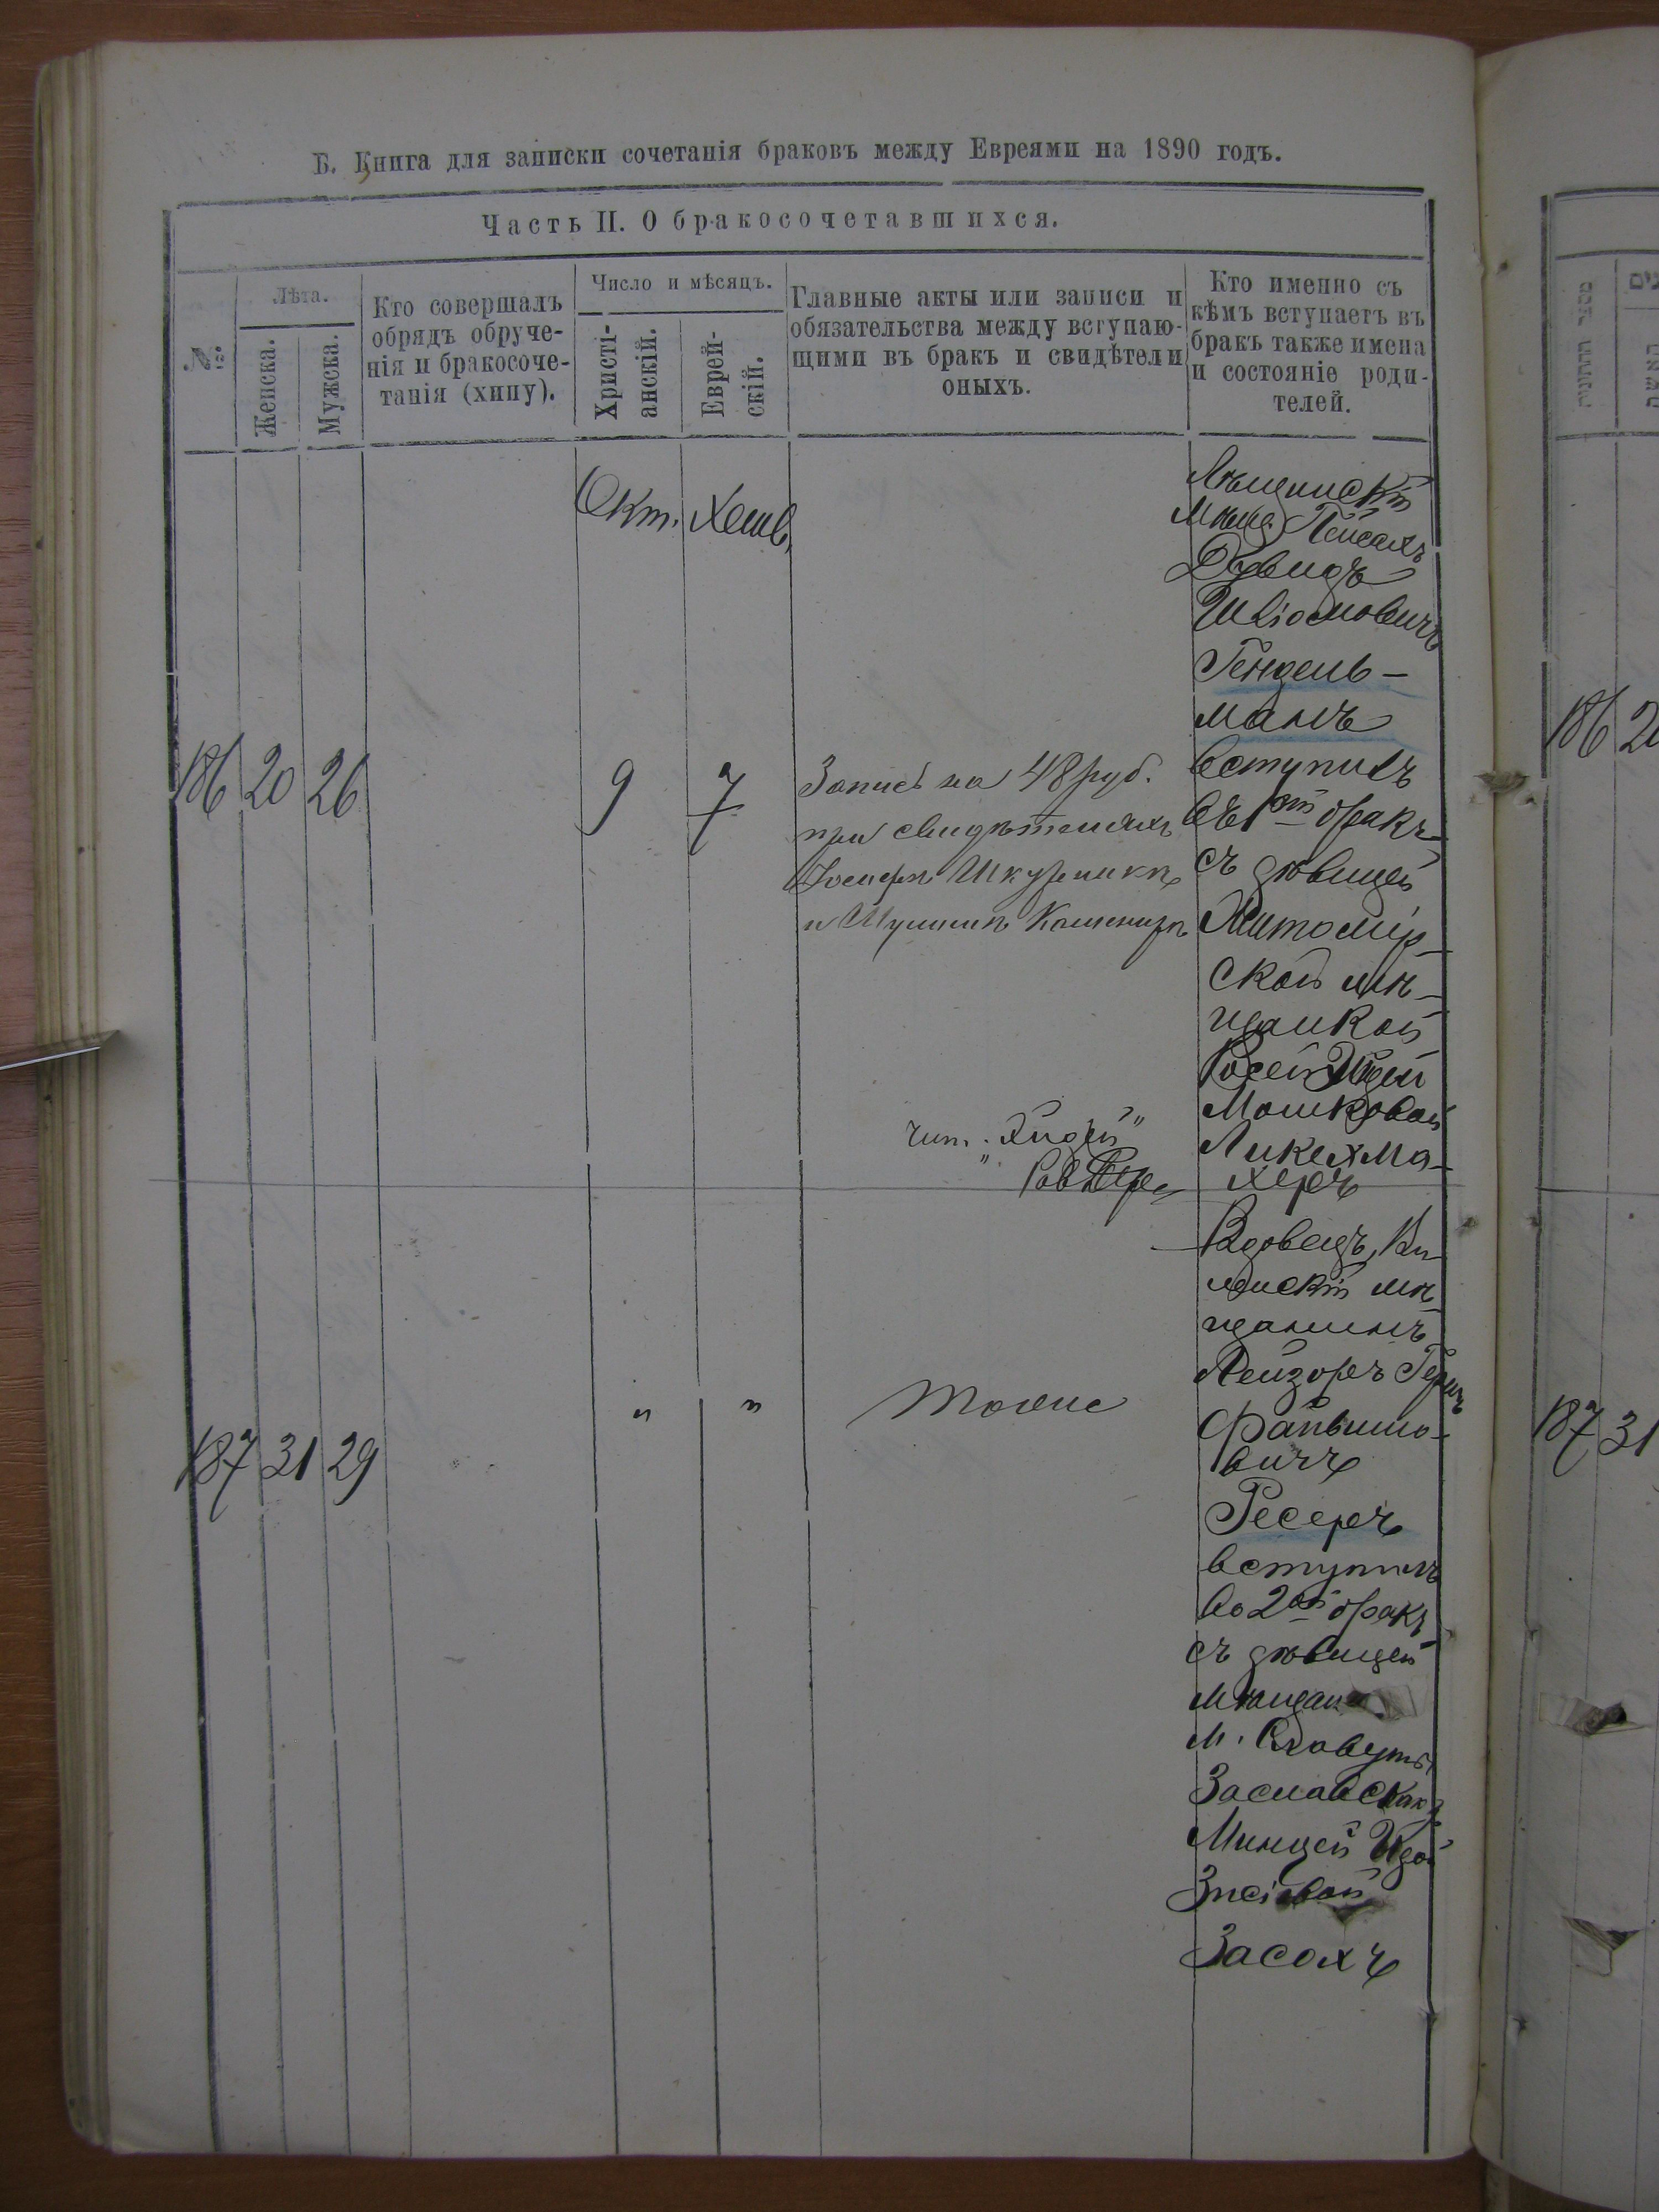 Б. Книга для записки сочетанія браковъ между Евреями на 1890 годъ.
Часть II. О бракосочетавшихся.
№
Лѣта.
Женска.
Мужска.
Кто совершалъ
обрядъ обруче-
нія и бракосоче-
танія (хипу).
Число и мѣсяцъ.
Христі-
анскій.
Еврей-
скій.
Главные акты или записи и
обязательства между вступаю-
щими въ бракъ и свидѣтели
оныхъ.
Кто именно съ
кѣмъ вступаетъ въ
бракъ также имена
и состояніе роди-
телей.
Окт. Хешв.
186 20 26
9 7
Запись на 48 руб.
при свидѣтеляхъ
Іосифѣ Шкурникѣ
и Шулимѣ Кошенирѣ
Лѣщинскій
мѣщ. Пейсахъ
Дувидъ
Шліомовичъ
Гендель-
манъ
вступилъ
въ 1ый бракъ
съ дѣвицей
Житомір-
ской мѣ-
щанкой
Мошковой
Ликехма-
херъ
чит. „Хидей"
187 31 29
" "
Тоже
Вдовецъ,
мѣ-
щанинъ
Лейзоръ Герш
Файвишо-
вичъ
Ресеръ
вступилъ
во 2ой бракъ
съ дѣвицей
мѣщан
м. Славуты
Заславскаго у.
Минцей
Засохъ
186 2
187 31